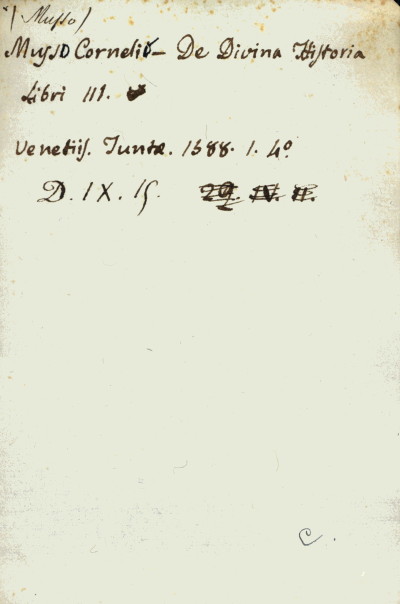 (Musso)
Musso Cornelio - De Divina Historia
Libri III.
Venetiis. Juntæ. 1588. 1. 4º
D. IX. 15. 29. IV. 11.
C.